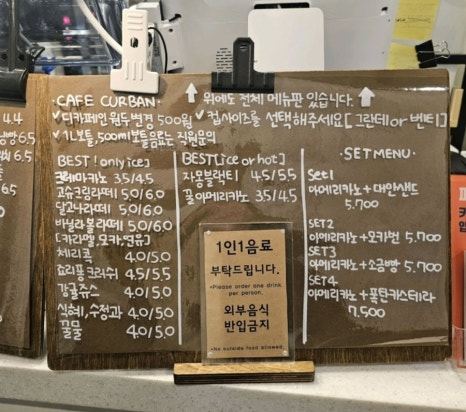 CAFE CURBAN.
위에도 전체 메뉴판 있습니다.
✓디카페인 원두변경 500원 ✓컵사이즈를 선택해주세요[그란데or벤티]
✓1L보틀,500ml보틀음료는 직원문의
BEST[only ice]
크레마카노 3.5/4.5
고슈크림라떼 5.0/6.0
달고나라떼 5.0/6.0
바닐라볼라떼 5.0/6.0
[카라멜,모카,연유]
체리콕 4.0/5.0
요리퐁크러쉬 4.5/5.5
감귤쥬스 4.0/5.0
식혜,수정과 4.0/5.0
꿀물 4.0/5.0
BEST[ice or hot]
자몽블랙티 4.5/5.5
꿀아메리카노 3.5/4.5
SET MENU
Set1
아메리카노+대만샌드
5.700
SET2
아메리카노+모카번 5.700
SET3
아메리카노+소금빵 5.700
SET4
아메리카노+폭탄카스테라
7.500
1인1음료
부탁드립니다.
*Please order one drink
per person.
외부음식
반입금지
*No outside food allowed.
4.4
6.5
6.5